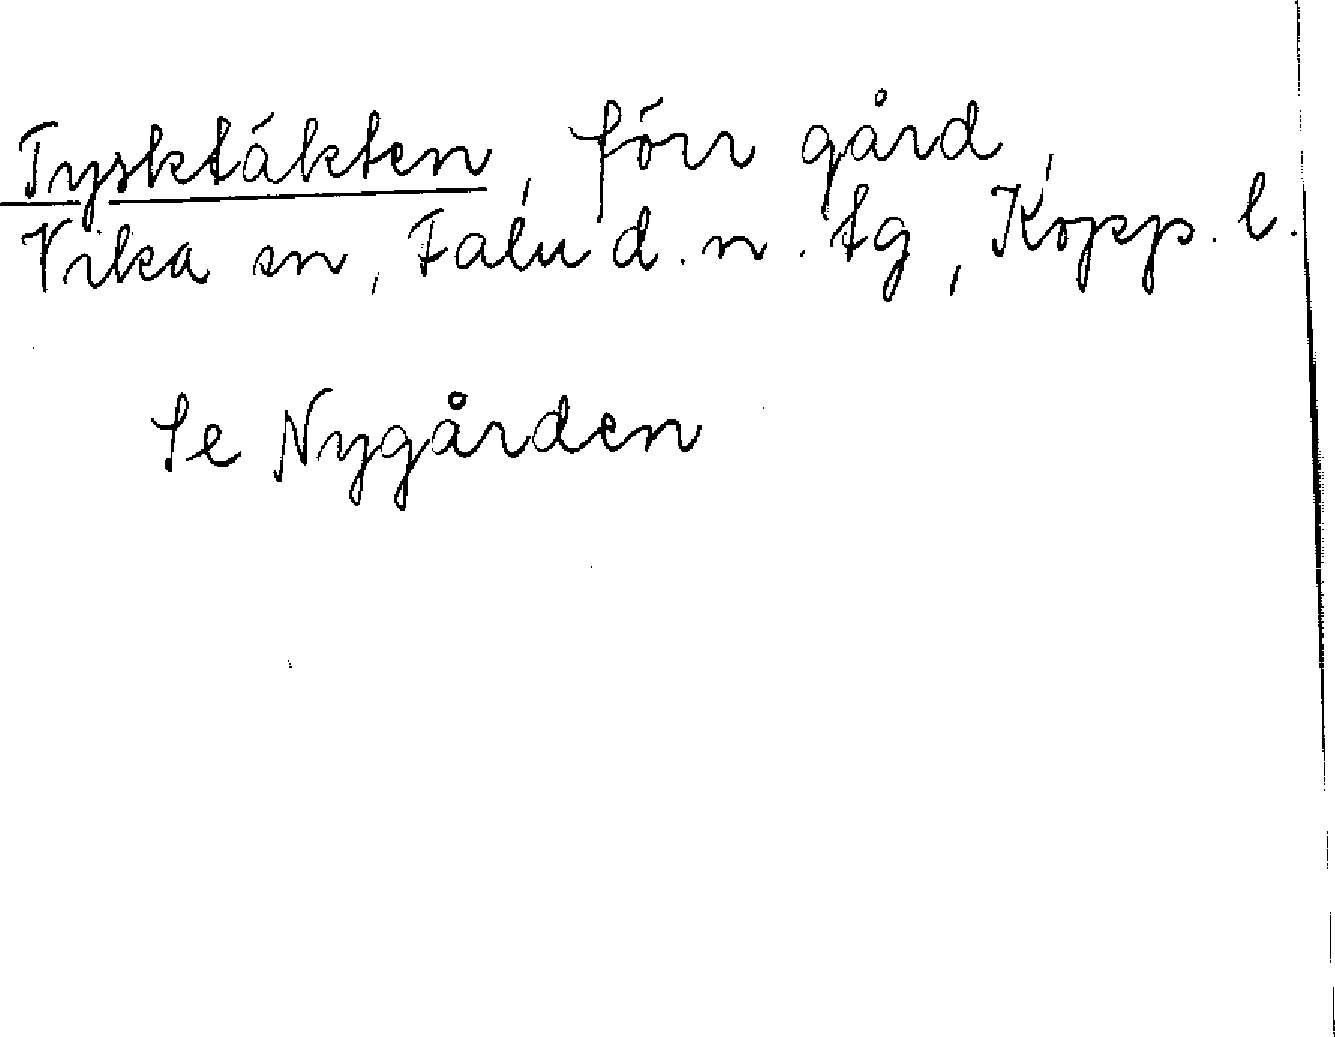 Tysktäkten, förr gård,
Vika sn, Falu d. n. tg, Kopp. l.
Se Nygården